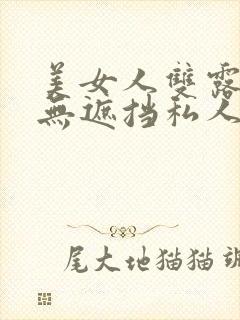 美女人雙露
無遮挡私人
尾大地猫猫